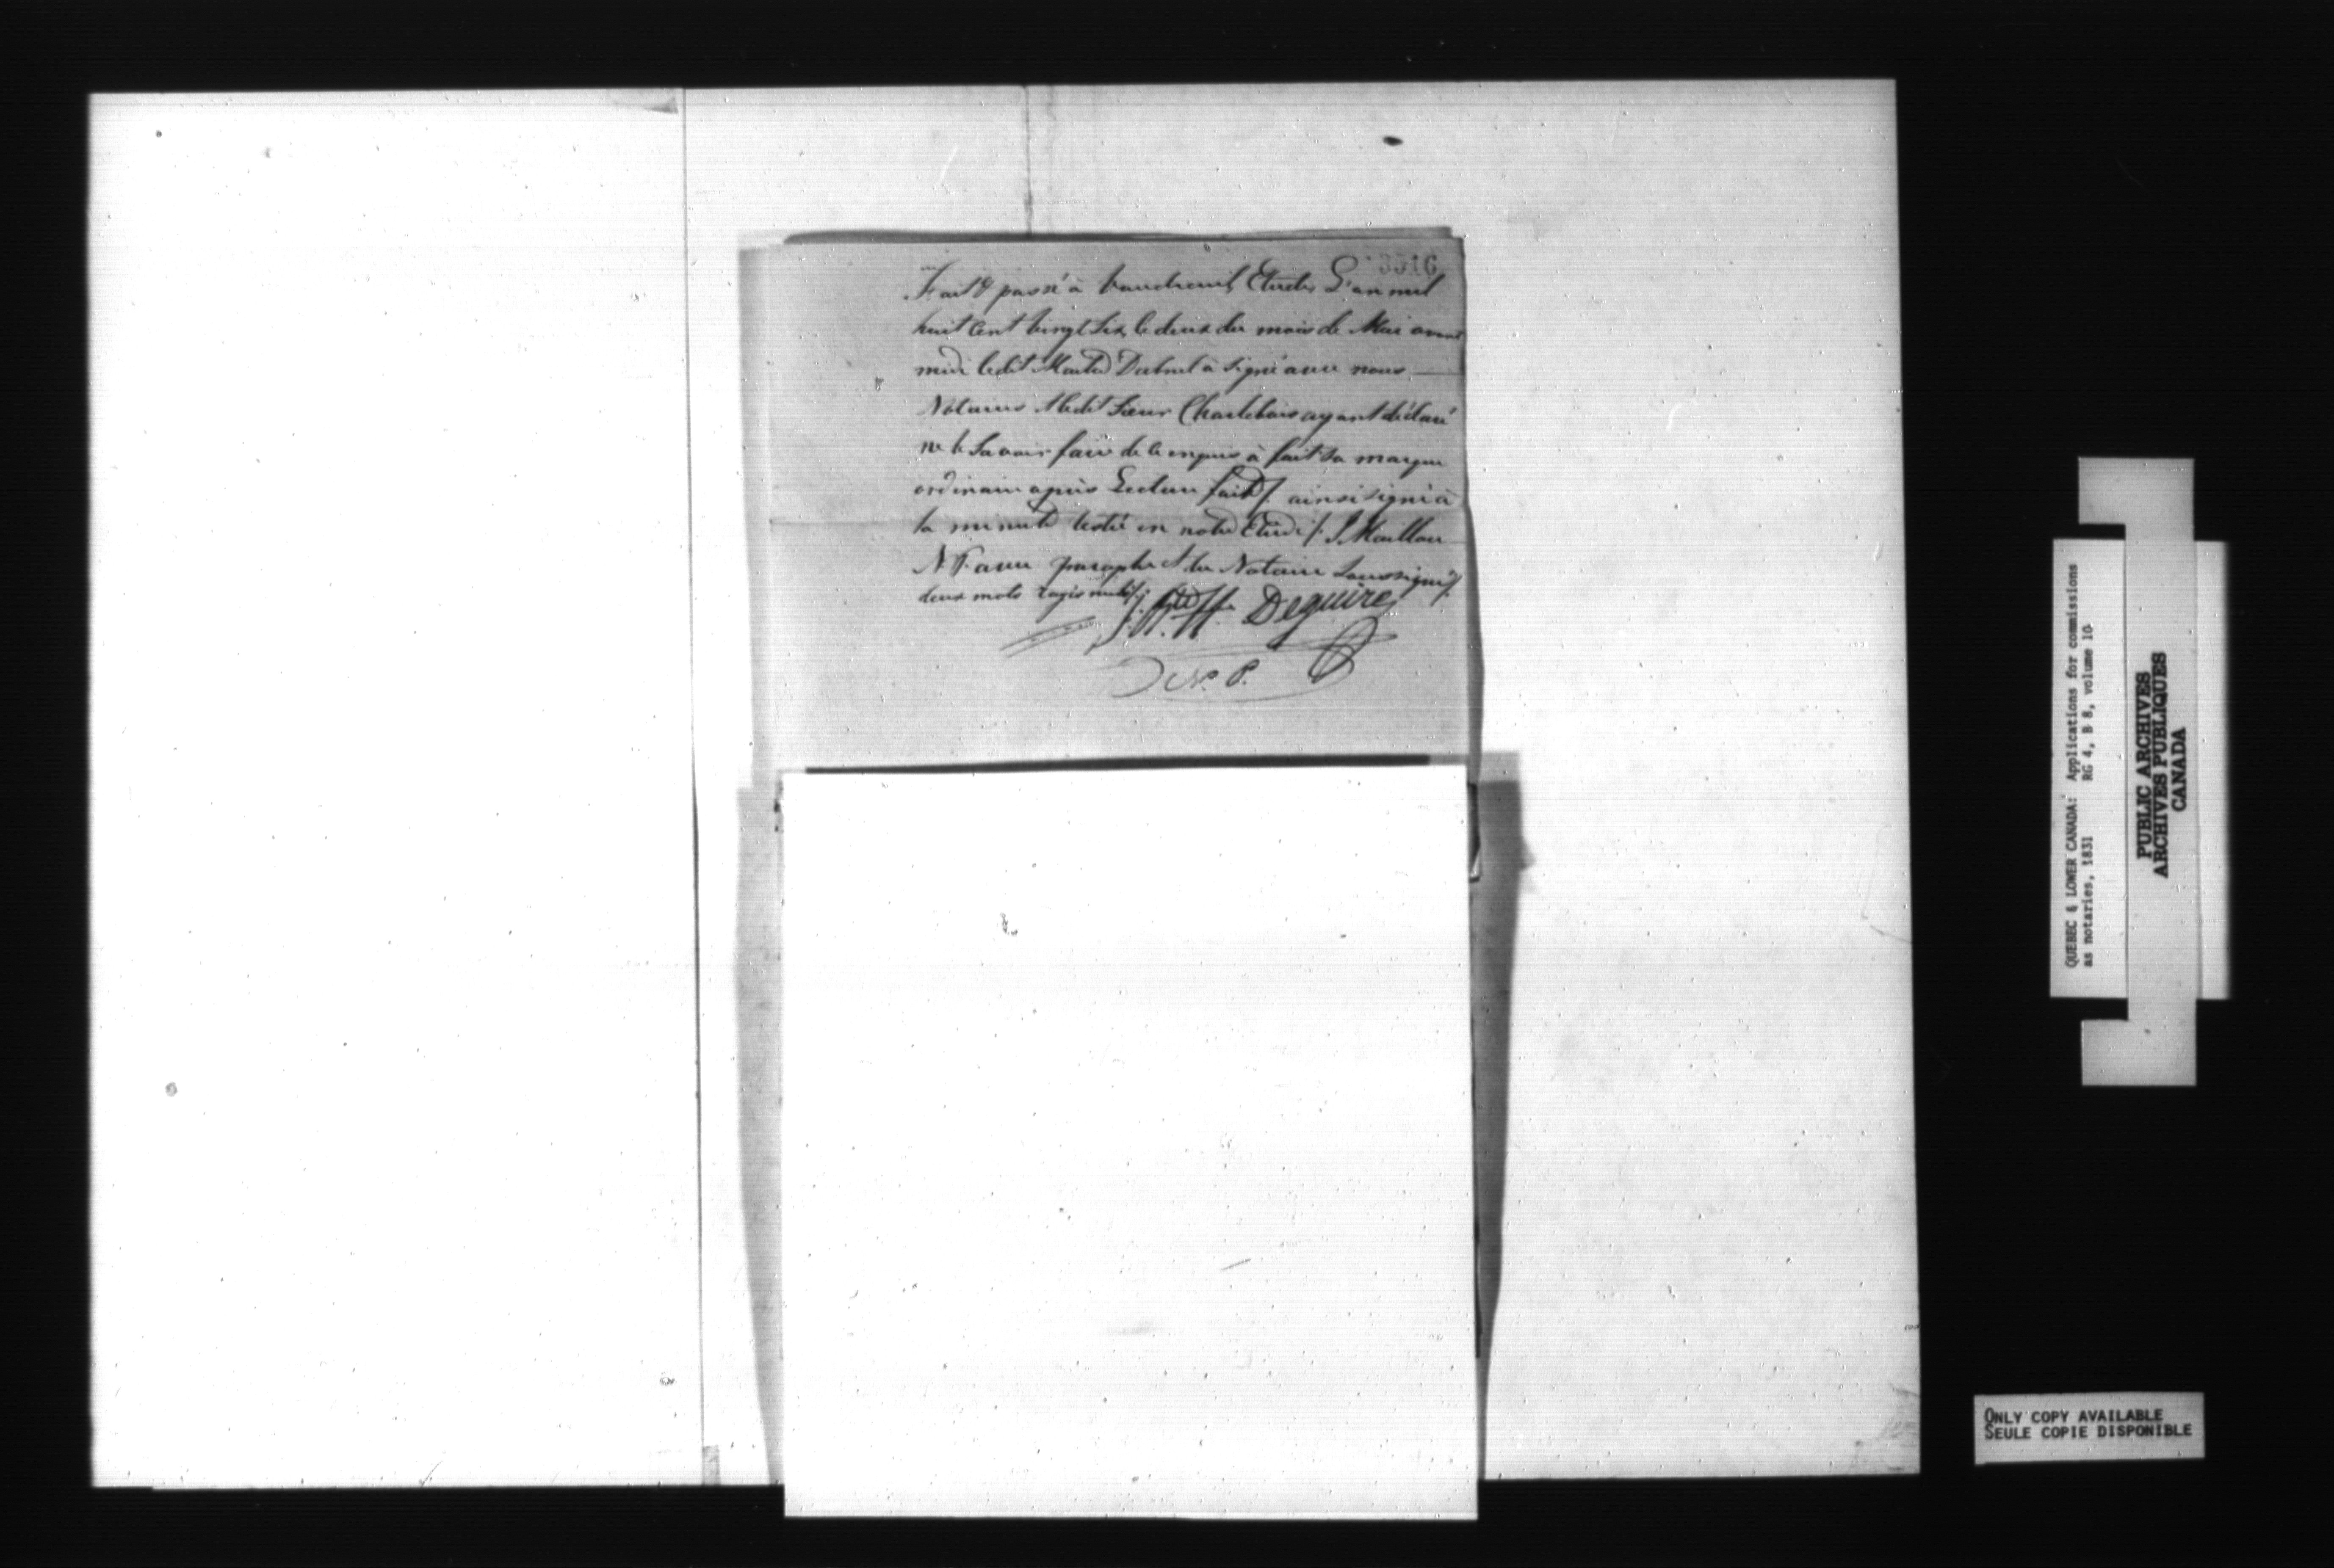 3516
Fait & passé à Vaudreuil, Etude, L'an mil
huit Cent vingt Six, le deux du mois de Mai avant
midi ledit à signé avec nous
Notaires & ledit Sieur Charlebois ayant déclaré
ne le Savoir faire de ce enquis à fait Sa marque
ordinaire après Lecture faite /. ainsi signé à
la minute restée en notre Etude /:
N. P. avec paraphe & du Notaire Soussigné /.
deux mots rayés nuls /.
Deguire
N. P.
QUEBEC & LOWER CANADA: Applications for commissions
as notaries, 1831 RG 4, B 8, volume 10
PUBLIC ARCHIVES
ARCHIVES PUBLIQUES
CANADA
ONLY COPY AVAILABLE
SEULE COPIE DISPONIBLE